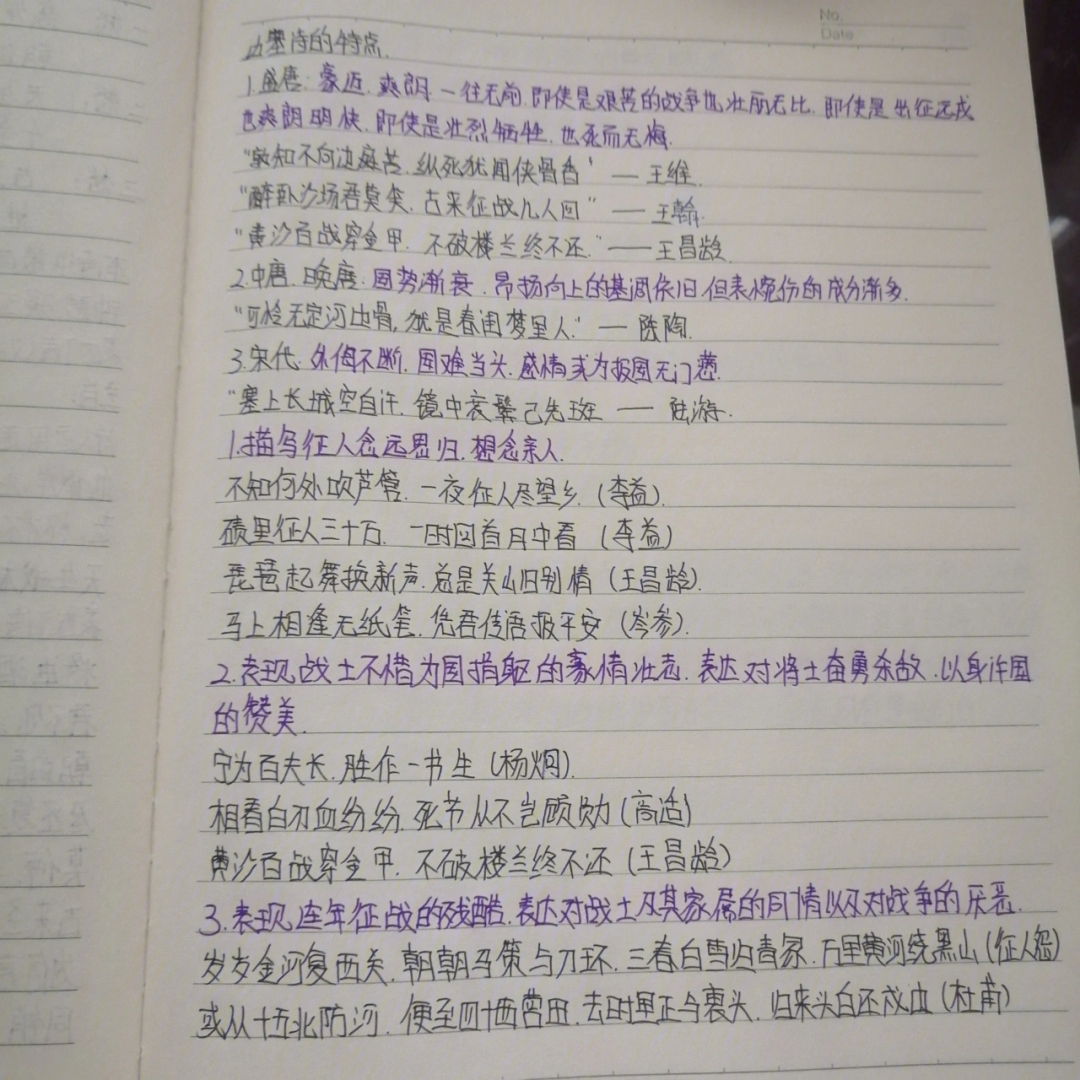 No.
Date
边塞诗的特点.
1.盛唐:豪迈.爽朗.一往无前.即使是艰苦的战争也壮丽无比.即使是出征远戍
也爽朗明快.即使是壮烈牺牲.也死而无悔.
"孰知不向边庭苦.纵死犹闻侠骨香'—王维.
"醉卧沙场君莫笑.古来征战几人回"—王翰.
"黄沙百战穿金甲.不破楼兰终不还."——王昌龄.
2.中唐.晚唐.国势渐衰.昂扬向上的基调依旧.但表惋伤的成分渐多.
"可怜无定河边骨,犹是春闺梦里人."—陈陶.
3.宋代.外侮不断.国难当头.感情或为报国无门
"塞上长城空自许.镜中衰鬓已先斑—陆游.
1.描写征人念远思归.想念亲人.
不知何处吹芦管.一夜征人尽望乡.(李益).
碛里征人三十万.一时回首月中看(李益)
琵琶起舞换新声.总是关山旧别情(王昌龄).
马上相逢无纸笔.凭君传语报平安(岑参).
2.表现战士不惜为国捐躯的豪情壮志.表达对将士奋勇杀敌.以身许国
的赞美.
宁为百夫长.胜作一书生(杨炯).
相看白刃血纷纷.死节从不岂顾勋(高适)
黄沙百战穿金甲.不破楼兰终不还(王昌龄)
3.表现连年征战的残酷.表达对战士及其家属的同情以及对战争的厌恶.
岁岁金河复西关.朝朝马策与刀环.三春白雪归青冢.万里黄河绕黑山(征人怨)
或从十五北防河.便至四十西营田.去时里正今裹头.归来头白还戍血(杜甫)